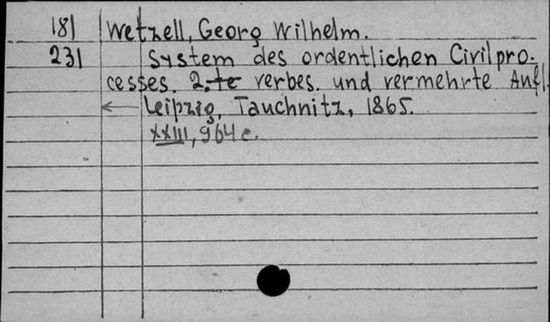 181 Wetzell, Georg Wilhelm.
231 System des ordentlichen Civilpro-
cesses. 2-te verbes. und vermehrte Aufl.
Leipzig, Tauchnitz, 1865.
XXIII, 964 c.